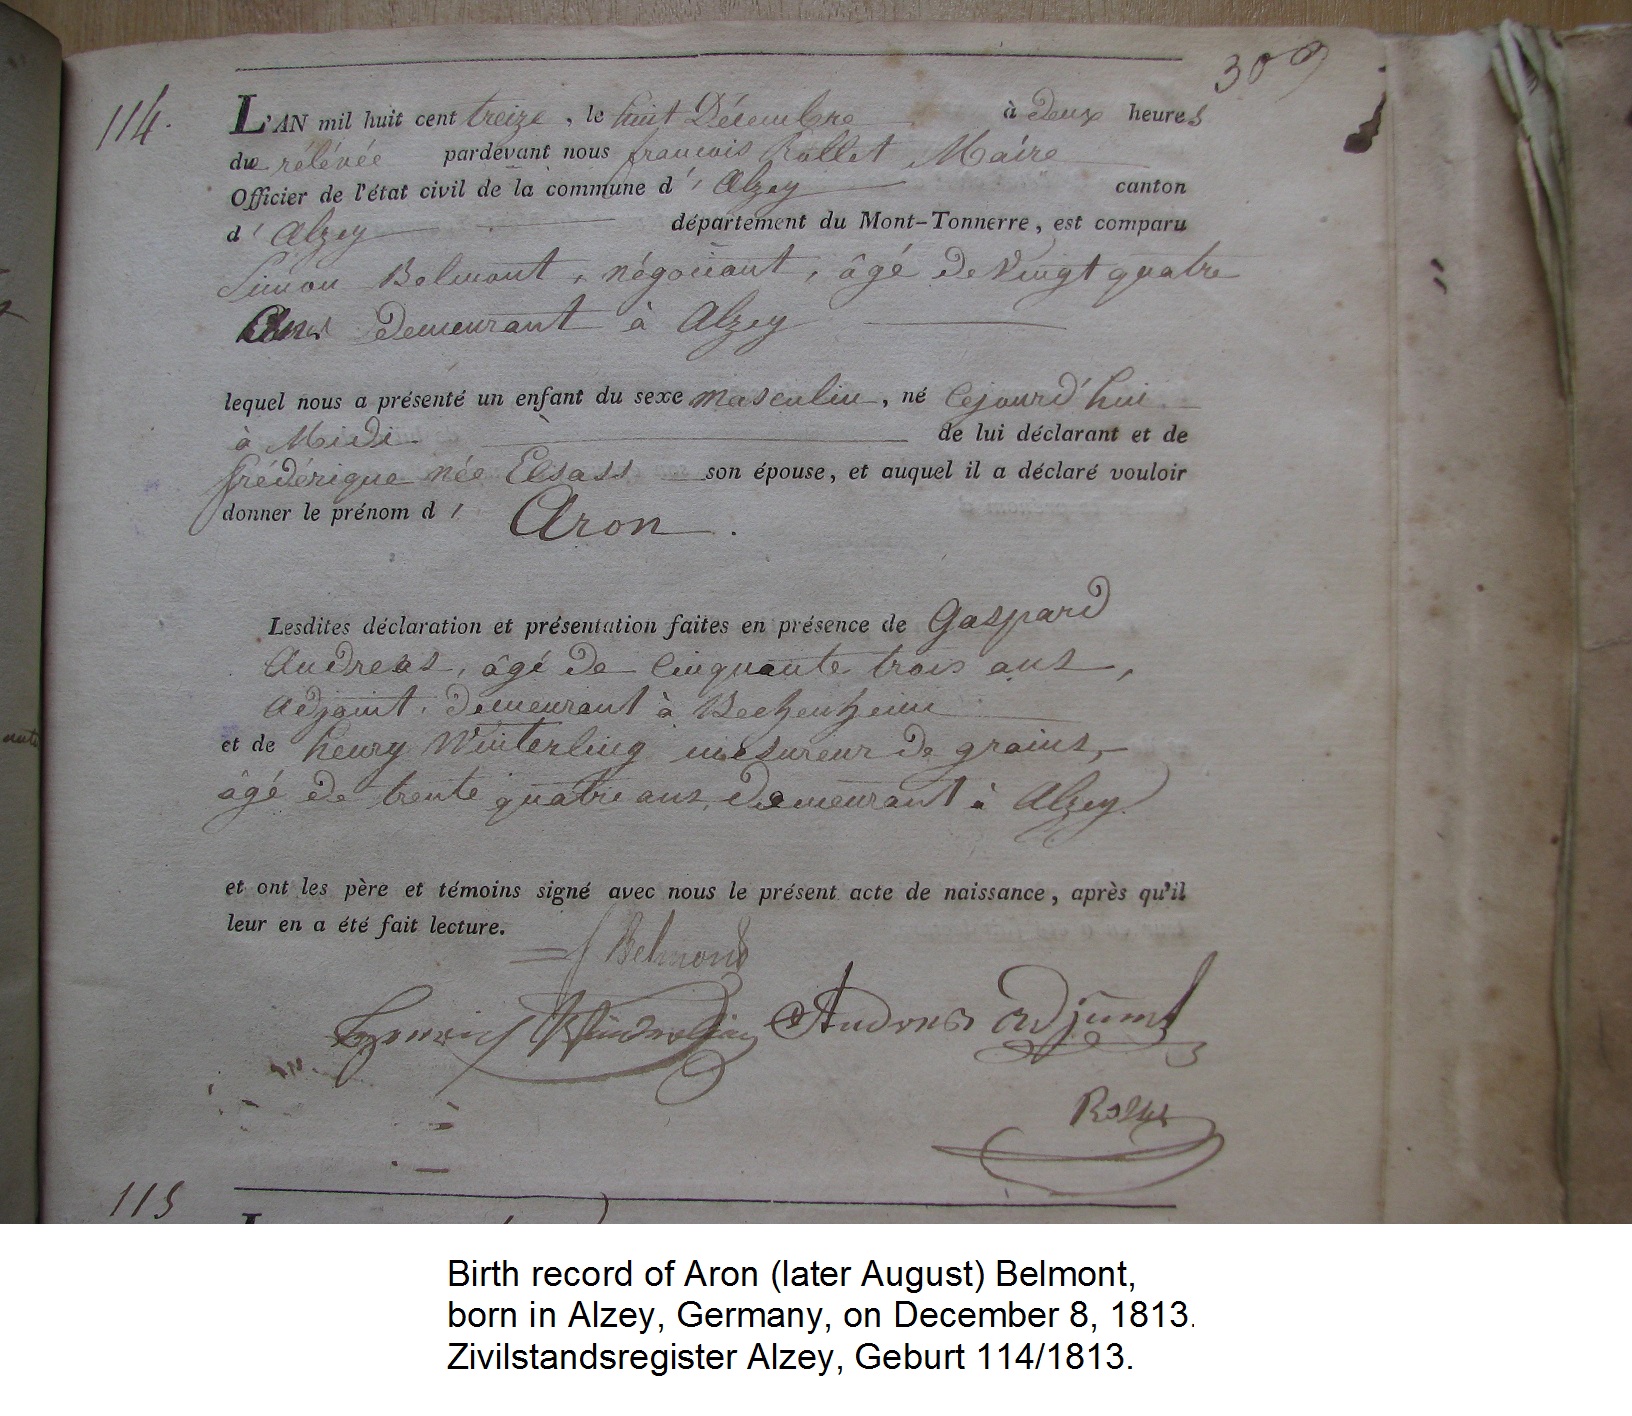 309
114.
L'AN mil huit cent treize, le huit Décembre à Deux heures
du rélévée pardevant nous françois Rollet Maire
Officier de l'état civil de la commune d' Alzey canton
d' Alzey département du Mont-Tonnerre, est comparu
Simon Belmont, négociant, âgé de Vingt quatre
Ans demeurant à Alzey
lequel nous a présenté un enfant du sexe masculin, né cejourd'hui
à Midi de lui déclarant et de
frédérique née Elsass son épouse, et auquel il a déclaré vouloir
donner le prénom d' Aron.
Lesdites déclaration et présentation faites en présence de Gaspard
Andreas, âgé de cinquante trois ans,
adjoint, demeurant à Bechenheim
et de henry Winterling mesureur de grains,
âgé de trente quatre ans, demeurant à Alzey.
et ont les père et témoins signé avec nous le présent acte de naissance, après qu'il
leur en a été fait lecture.
Belmont
Andreas adjunct
Rollet
115
Birth record of Aron (later August) Belmont,
born in Alzey, Germany, on December 8, 1813.
Zivilstandsregister Alzey, Geburt 114/1813.